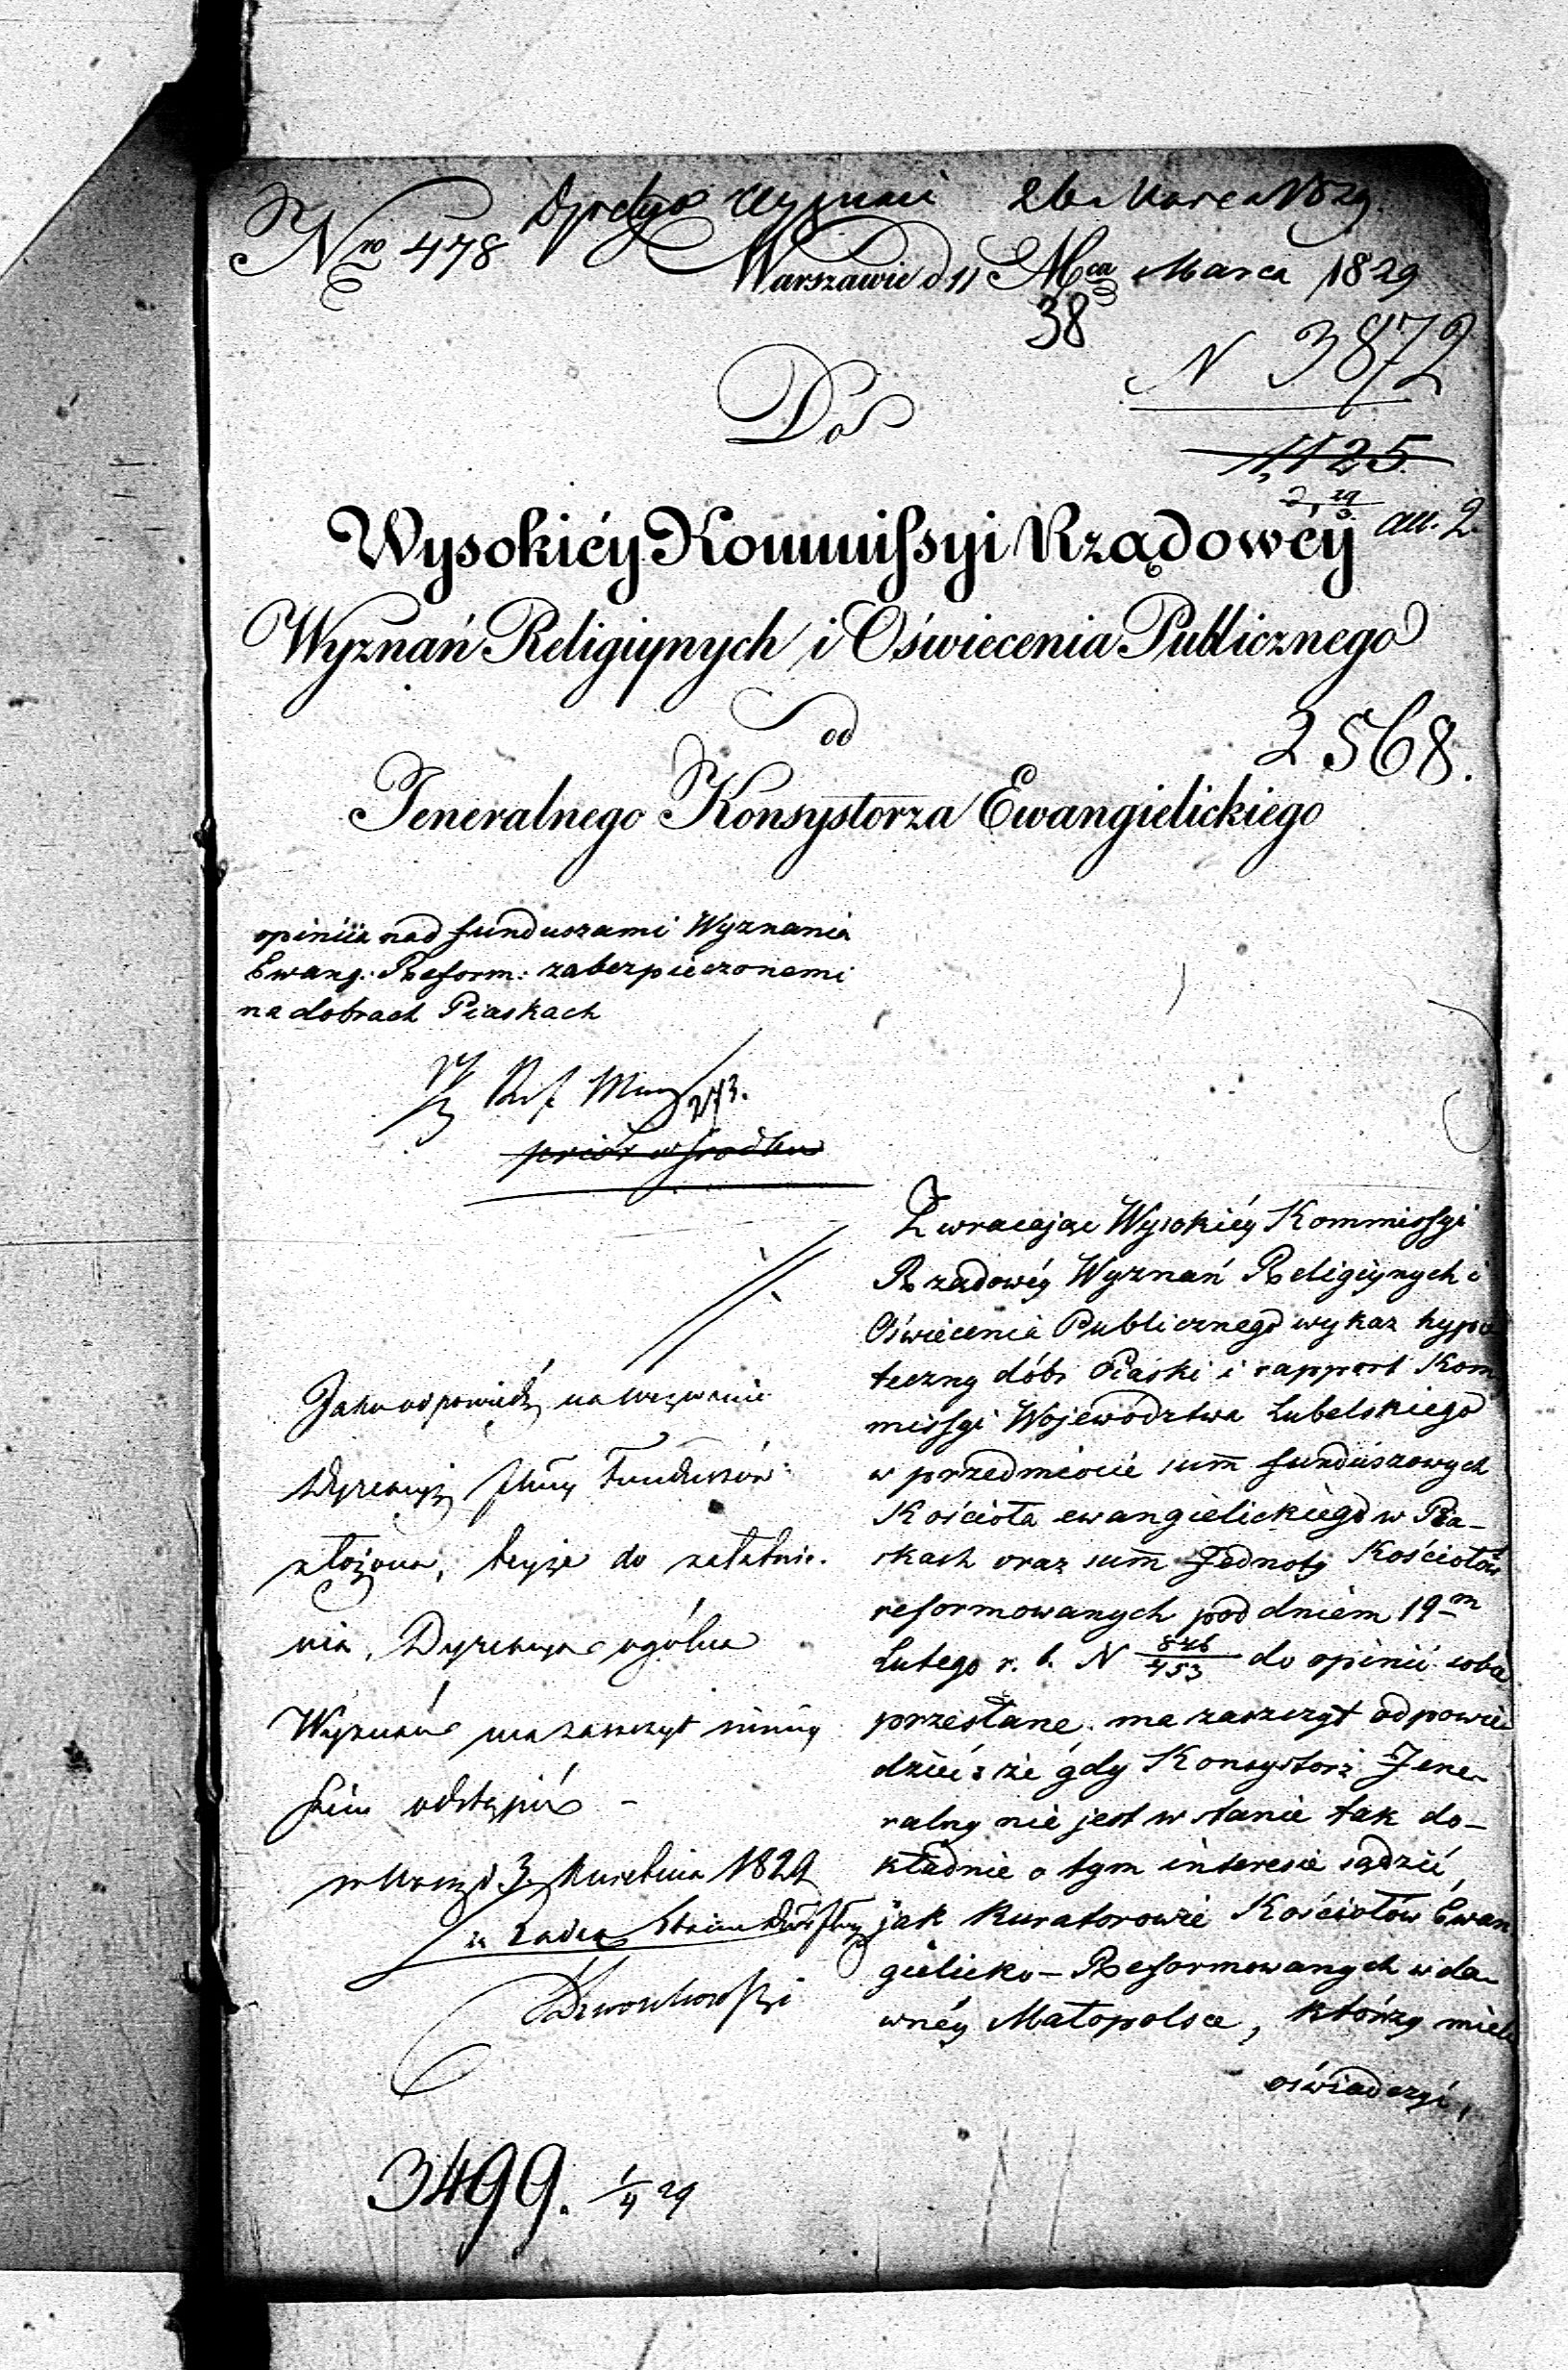 Nro 478
26 Marca 1829
Warszawie d 11 Mca Marca 1829
38
N 3872
Do
1,125.
an. 2.
Wysokiéy Kommissyi Rządowéy
Wyznań Religiynych i Oświecenia Publicznego
od
2568.
Jeneralnego Konsystorza Ewangielickiego
opiniia nad funduszami Wyznania
Ewang: Reform: zabezpieczonemi
na dobrach Piaskach
Zwracając Wysokiéy Kommissyi
Rządowéy Wyznań Religiynych i
Oświecenia Publicznego wykaz hypo
teczny dóbr Piaski i rapport Kom
missyi Województwa Lubelskiego
w przedmiocie summ funduszowych
Kościoła ewangielickiego w Pia-
skach oraz summ Jednoty Kościołów
reformowanych pod dniem 19m
Lutego r. b. N 846/453 do opinii sobie
przesłane, ma zaszczyt odpowie
dzieć: że gdy Konsystorz Jene-
ralny nie jest w stanie tak do-
kładnie o tym interesie sądzić,
jak Kuratorowie Kościołów Ewan
gielicko-Reformowanych w da-
wnéy Małopolsce, którzy mieli
oświadczyć,
Jako odpowiedź na wezwanie
Dyrekcyi Funduszów
złożona, tejże do załatwie-
nia, Dyrekcya ogólna
Wyznań ma zaszczyt
odstąpić -
d 3 Kwietnia 1829
za Radcę Stanu
3499. 1/4 29